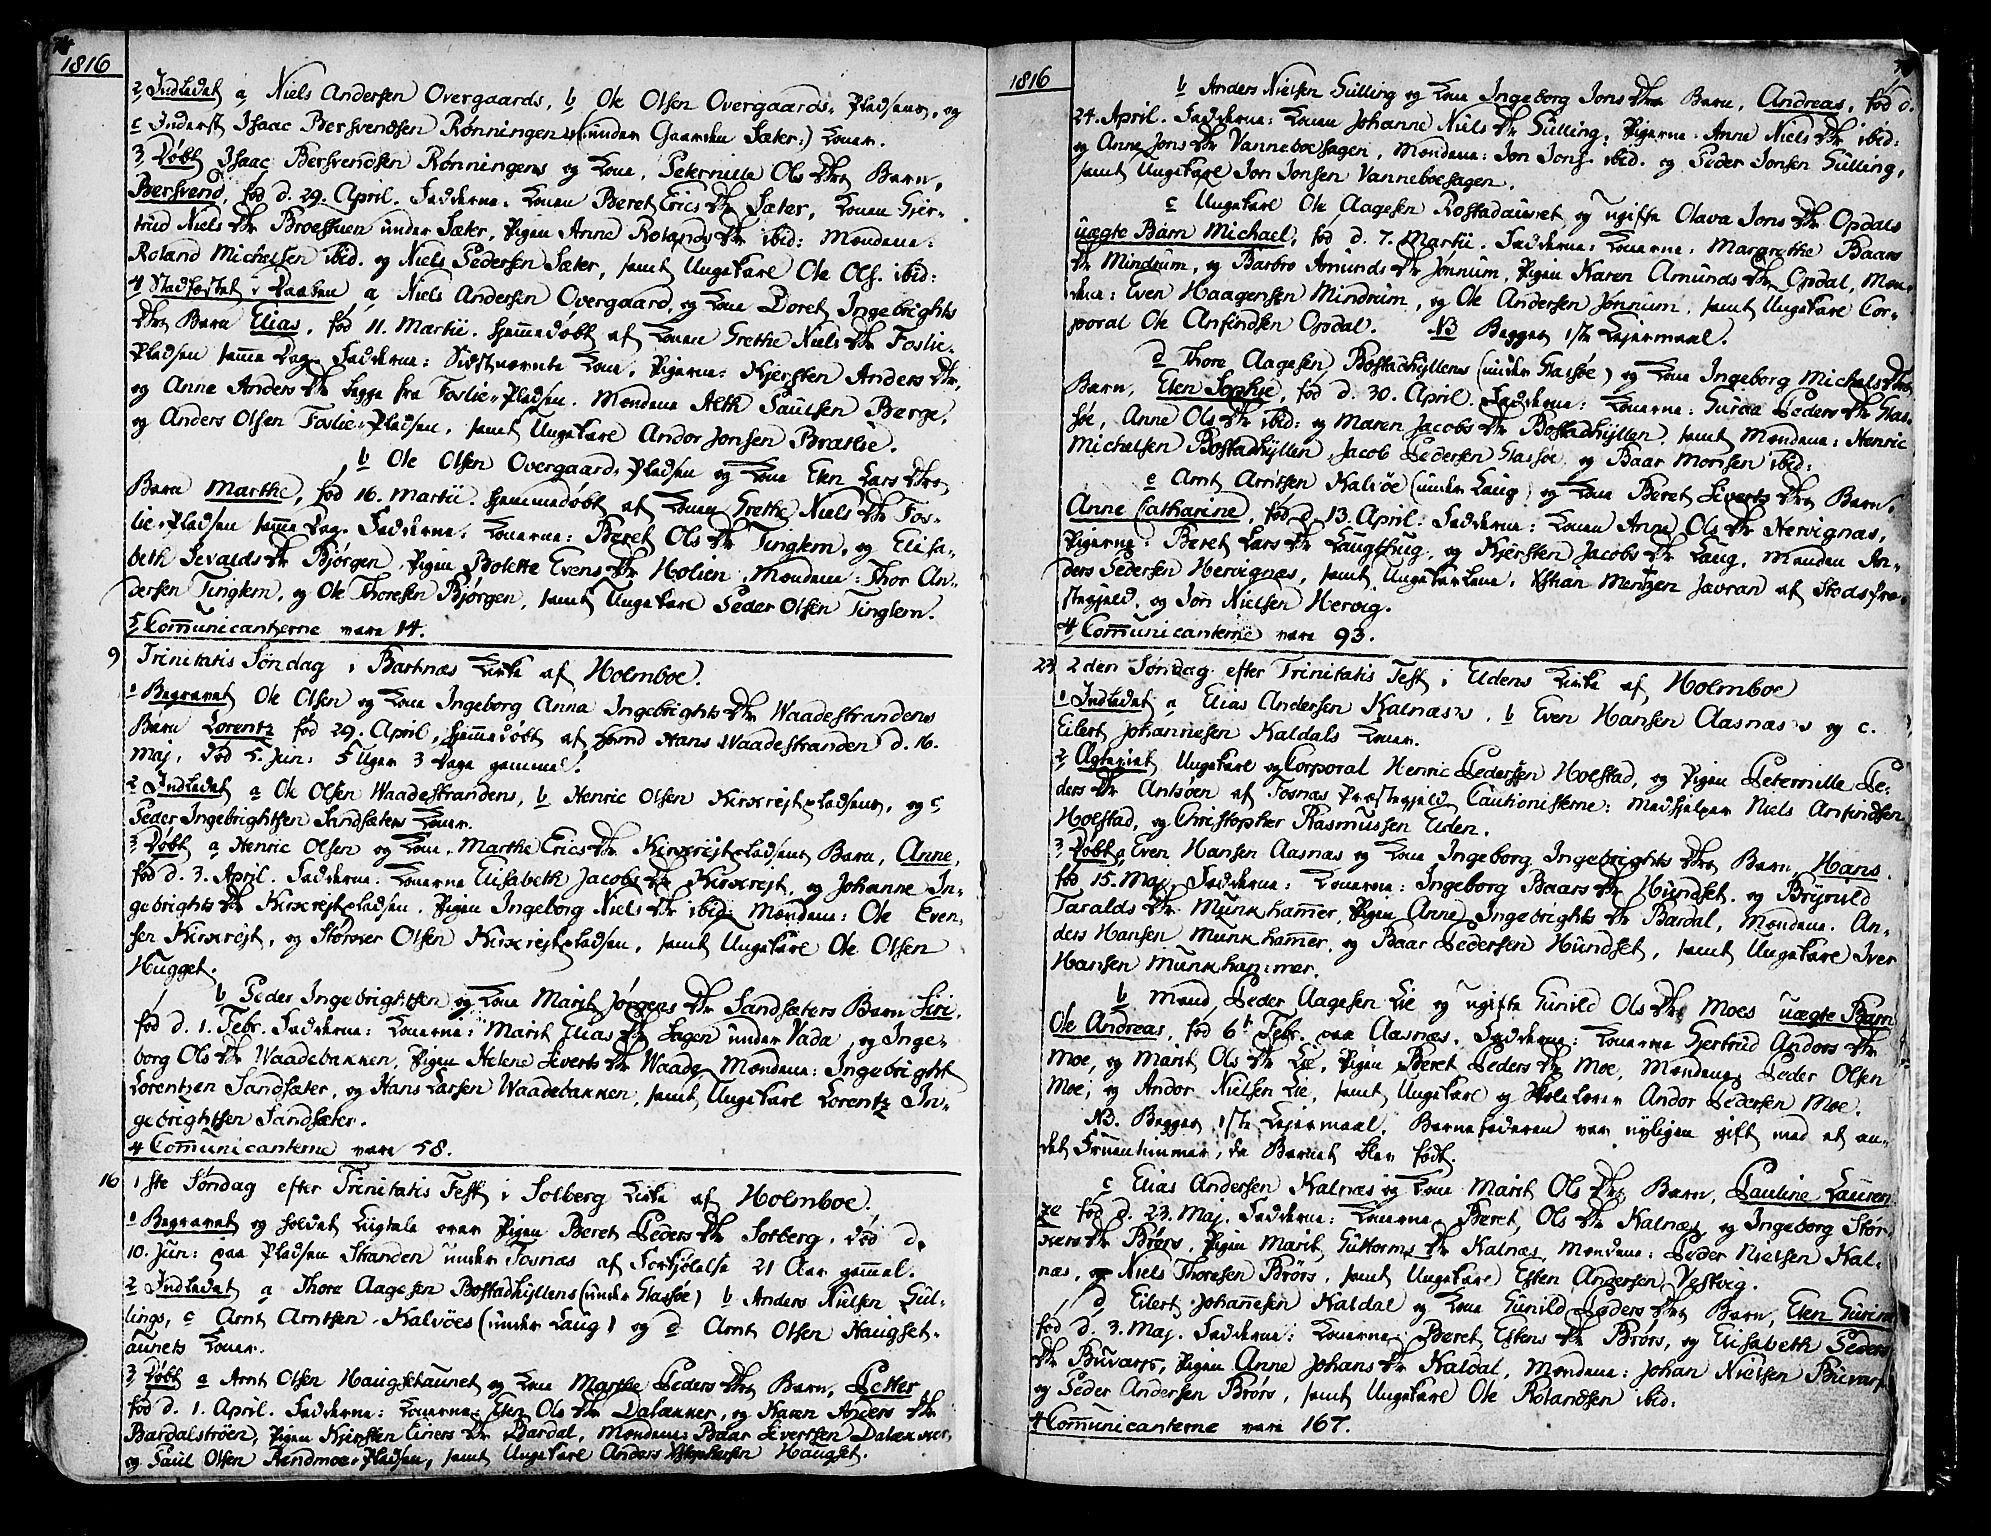 1816
2 Indledet a Niels Andersen Overgaards, b Ole Olsen Overgaards-Pladsens, og
c Inderst Isaac Bersvendsen Rønningens (under Gaarden Sæter:) Koner.
3 Døbt Isaac Bersvendsen Rønningens og Kone, Peternille Ols Dtrs Barn,
Bersvend, fød d. 29. April. Fadderne: Konen Beret Erics Dtr Sæter, Konen Gjer-
trud Niels Dtr Broestuen under Sæter, Pigen Anne Rolands Dtr ibid: Mændene:
Roland Michelsen ibid. og Niels Pedersen Sæter, samt Ungekarl Ole Ols. ibid:
4 Stadfæstet i Daaben a, Niels Andersen Overgaard, og Kone Doret Ingebrights
Dtrs Barn Elias, fød 11. Martii. hjemmedøbt af Konen Grethe Niels Dtr Foslie-
Pladsen samme Dag. Fadderne: Sidstnævnte Kone, Pigerne: Kjersten Anders Dtr,
og Anne Anders Dtr begge fra Foslie-Pladsen. Mændene Alth Paulsen Berge,
og Anders Olsen Foslie-Pladsen, samt Ungekarl Andor Jonsen Bratlie.
b Ole Olsen Overgaards-Pladsen og Kone Elen Lars Dtrs
Barn Marthe, fød 16. Martii. hjemmedøbt af Konen Grethe Niels Dtr Fos-
lie-Pladsen samme Dag. Fadderne. Konerne: Beret Ols Dtr Tinglem, og Elisa-
beth Sevalds Dtr Bjørgen, Pigen Bolette Evens Dtr Holien, Mændene: Thor An-
dersen Tinglem, og Ole Thoresen Bjørgen, samt Ungekarl Peder Olsen Tinglem.
5 Communicanterne vare 14.
9 Trinitatis Søndag i Bartnæs Kirke af Holmboe.
1 Begravet Ole Olsen og Kone Ingeborg Anna Ingebrights Dtr Waadestrandens
Barn Lorentz fød 29. April, hjemmedøbt af Hans Waadestranden d. 16.
Maj, død 5. Jun: 5 Uger 3 Dage gammel.
2 Indledet a Ole Olsen Waadestrandens, b Henric Olsen Kirkrejtpladsens, og c
Peder Ingebrightsen Sandsæters Koner.
3 Døbt a Henric Olsen og Kone, Marthe Erics Dtr Kirkrejtpladsens Barn, Anne,
fød d. 3. April. Fadderne: Konerne Elisabeth Jacobs Dtr Kirkrejt, og Johanne In-
gebrights Dtr Kirkrejtpladsen, Pigen Ingeborg Niels Dtr ibid: Mændene: Ole Even-
sen Kirkrejt, og Størker Olsen Kirkrejtpladsen, samt Ungekarl Ole Olsen
Hugget.
b Peder Ingebrightsen og Kone Marit Jørgens Dtr Sandsæters Barn Siri,
fød d. 1. Febr. Fadderne: Konerne: Marit Elias Dtr Hagen under Vada, og Inge-
borg Ols Dtr Waadebakken, Pigen Helene Siverts Dtr Waade Mændene: Ingebright
Lorentzen Sandsæter, og Hans Larsen Waadebakken, samt, Ungekarl Lorentz In-
gebrightsen Sandsæter.
4 Communicanterne vare 58.
16 1ste Søndag efter Trinitatis Fest i Solberg Kirke af Holmboe.
1 Begravet og holdet Liigtale over Pigen Beret Peders Dtr Solberg, død d.
10. Jun: paa Pladsen Stranden under Fosnæs af Forkjølelse 21 Aar gammel.
2 Indledet a Thore Aagesen Bostadhyllens (under Hassøe) b Anders Nielsen Gül-
lings, c Arnt Arntsen Kalvöes (under Laug) og d Arnt Olsen Haugset-
aunets Koner.
3 Døbt a Arnt Olsen Haugsetaunet og Kone Marthe Peders Dtrs Barn, Petter,
fød d. 1. April. Fadderne: Konerne: Elen Ols Dtr Dalækker, og Karen Anders Dtr
Bardalstrøen, Pigen Kjersten Einers Dtr Bardal, Mændene: Baar Sivertsen Dalækker,
og Paul Olsen Rendmoe-Pladsen, samt Ungekarl Anders Haugset.
1816
b Anders Nielsen Gülling og Kone Ingeborg Jons Dtrs Barn, Andreas, fød d.
24. April. Fadderne: Konen Johanne Niels Dtr Gülling, Pigerne: Anne Niels Dtr ibid:
og Anne Jons Dtr Vanneboehagen, Mændene: Jon Jons. ibid. og Peder Jonsen Gülling,
samt Ungekarl Jon Jonsen Vanneboehagen.
c Ungekarl Ole Aagesen Rostadaunet, og ugifte Olava Jons Dtr Opdals
uægte Barn Michael, fød d. 7. Martii. Fadderne: Konerne: Margrethe Baars
Dtr Mindrum, og Barbro Amunds Dtr Jønnum, Pigen Karen Amunds Dtr Opdal, Mæn-
dene: Even Haagensen Mindrum, og Ole Andersen Jønnum, samt Ungekarl Cor-
poral Ole Anfindsen Opdal. NB Begges 1ste Lejermaal.
d Thore Aagesen Bostadhyllens (under Hassøe) og Kone Ingeborg Michels Dtrs
Barn, Elen Sophie, fød d. 30. April. Fadderne: Konerne: Guroe Peders Dtr Has-
søe, Anne Ols Dtr ibid: og Maren Jacobs Dtr Bostadhyllen, samt Mændene: Henric
Michelsen Bostadhyllen, Jacob Pedersen Hassøe og Baar Monsen ibid:
e Arnt Arntsen Kalvöe (under Laug) og Kone Beret Siverts Dtrs Barn,
Anne Catharine, fød d. 13. April: Fadderne: Konen Anne Ols Dtr Hervignæs,
Pigerne: Beret Lars Dtr Laugthug, og Kjersten Jacobs Dtr Laug, Manden An-
ders Pedersen Hervignæs, samt Ungekarlene, Mentzen Javran af Stods Præ-
stegjeld, og Jon Nielsen Hervig.
4 Communicanterne vare 93.
23 2den Søndag efter Trinitatis Fest i Eldens Kirke af Holmboe
1 Indledet a Elias Andersen Kalnæs's, b Even Hansen Aasnæs's og c.
Eilert Johannesen Kaldals Koner.
2 Ungekarl og Corporal Henric Pedersen Hoelstad, og Pigen Peternille Pe-
ders Dtr Antsoen af Fosnæs Præstegjeld Cautionisterne: Medhjelper Niels Anfindsen
Hoelstad, og Christopher Rasmussen Elden.
3 Døbt a Even Hansen Aasnæs og Kone Ingeborg Ingebrights Dtrs Barn, Hans,
fød 15. Maj. Fadderne: Konerne: Ingeborg Baars Dtr Hundset, og Brynild
Taralds Dtr Munkhammer, Pigen Anne Ingebrights Dtr Bardal, Mændene. An-
ders Hansen Munkhammer, og Baar Pedersen Hundset, samt Ungekarl Iver
Hansen Munkhammer.
b Mand, Peder Aagesen Lie og ugifte Gunild Ols Dtr Moes uægte Barn
Ole Andreas, fød 6te Febr. paa Aasnæs. Fadderne: Konerne Gjertrud Andors Dtr
Moe, og Marit Ols Dtr Lie, Pigen Beret Peders Dtr Moe, Mændene Peder Olsen
Moe, og Andor Nielsen Lie, samt Ungekarl og Skolelærer Andor Pedersen Moe.
NB. Begges 1ste Lejermaal. Barnefaderen var nyligen gift med et an-
det Fruentimmer, da Barnet blev født.
c Elias Andersen Kalnæs og Kone Marit Ols Dtrs Barn, Pauline Lauren-
ze fød d. 23. Maj. Fadderne: Konerne Beret Ols Dtr Kalnæs, og Ingeborg Stør-
kers Dtr Brørs, Pigen Marit Guttorms Dtr Kalnæs, Mændene: Peder Nielsen Kal-
næs, og Niels Thoresen Brørs, samt Ungekarl Esten Andersen Vestvig.
d Eilert Johannesen Kaldal og Kone Gunild Peders Dtrs Barn, Elen Gurine
fød d. 3. Maj. Fadderne: Konerne Beret Estens Dtr Brørs, og Elisabeth Peders
Dtr Buvarp, Pigen Anne Johans Dtr Kaldal, Mændene: Johan Nielsen Buvarp
og Peder Andersen Brørs, samt Ungekarl Ole Rolandsen ibid:
4 Communicanterne vare 167.